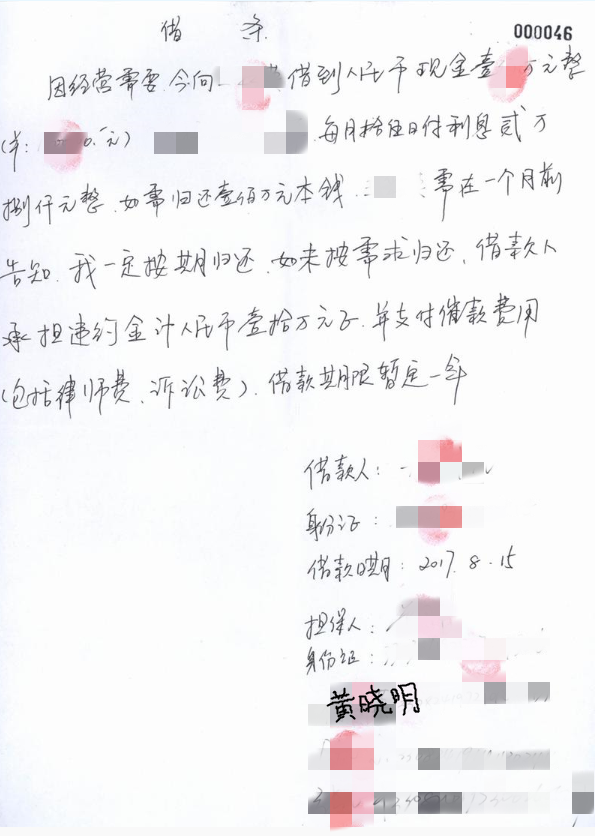 000046
借 条
因经营需要,今向 借到人民币现金壹 万元整
(¥: 元) 每月拾伍日付利息贰万
捌仟元整,如需归还壹佰万元本钱 需在一个月前
告知,我一定按期归还,如未按需求归还,借款人
承担违约金计人民币壹拾万元正,并支付催款费用
(包括律师费、诉讼费),借款期限暂定一年
借款人:
身份证:
借款日期: 2017.8.15
担保人:
身份证:
黄晓明